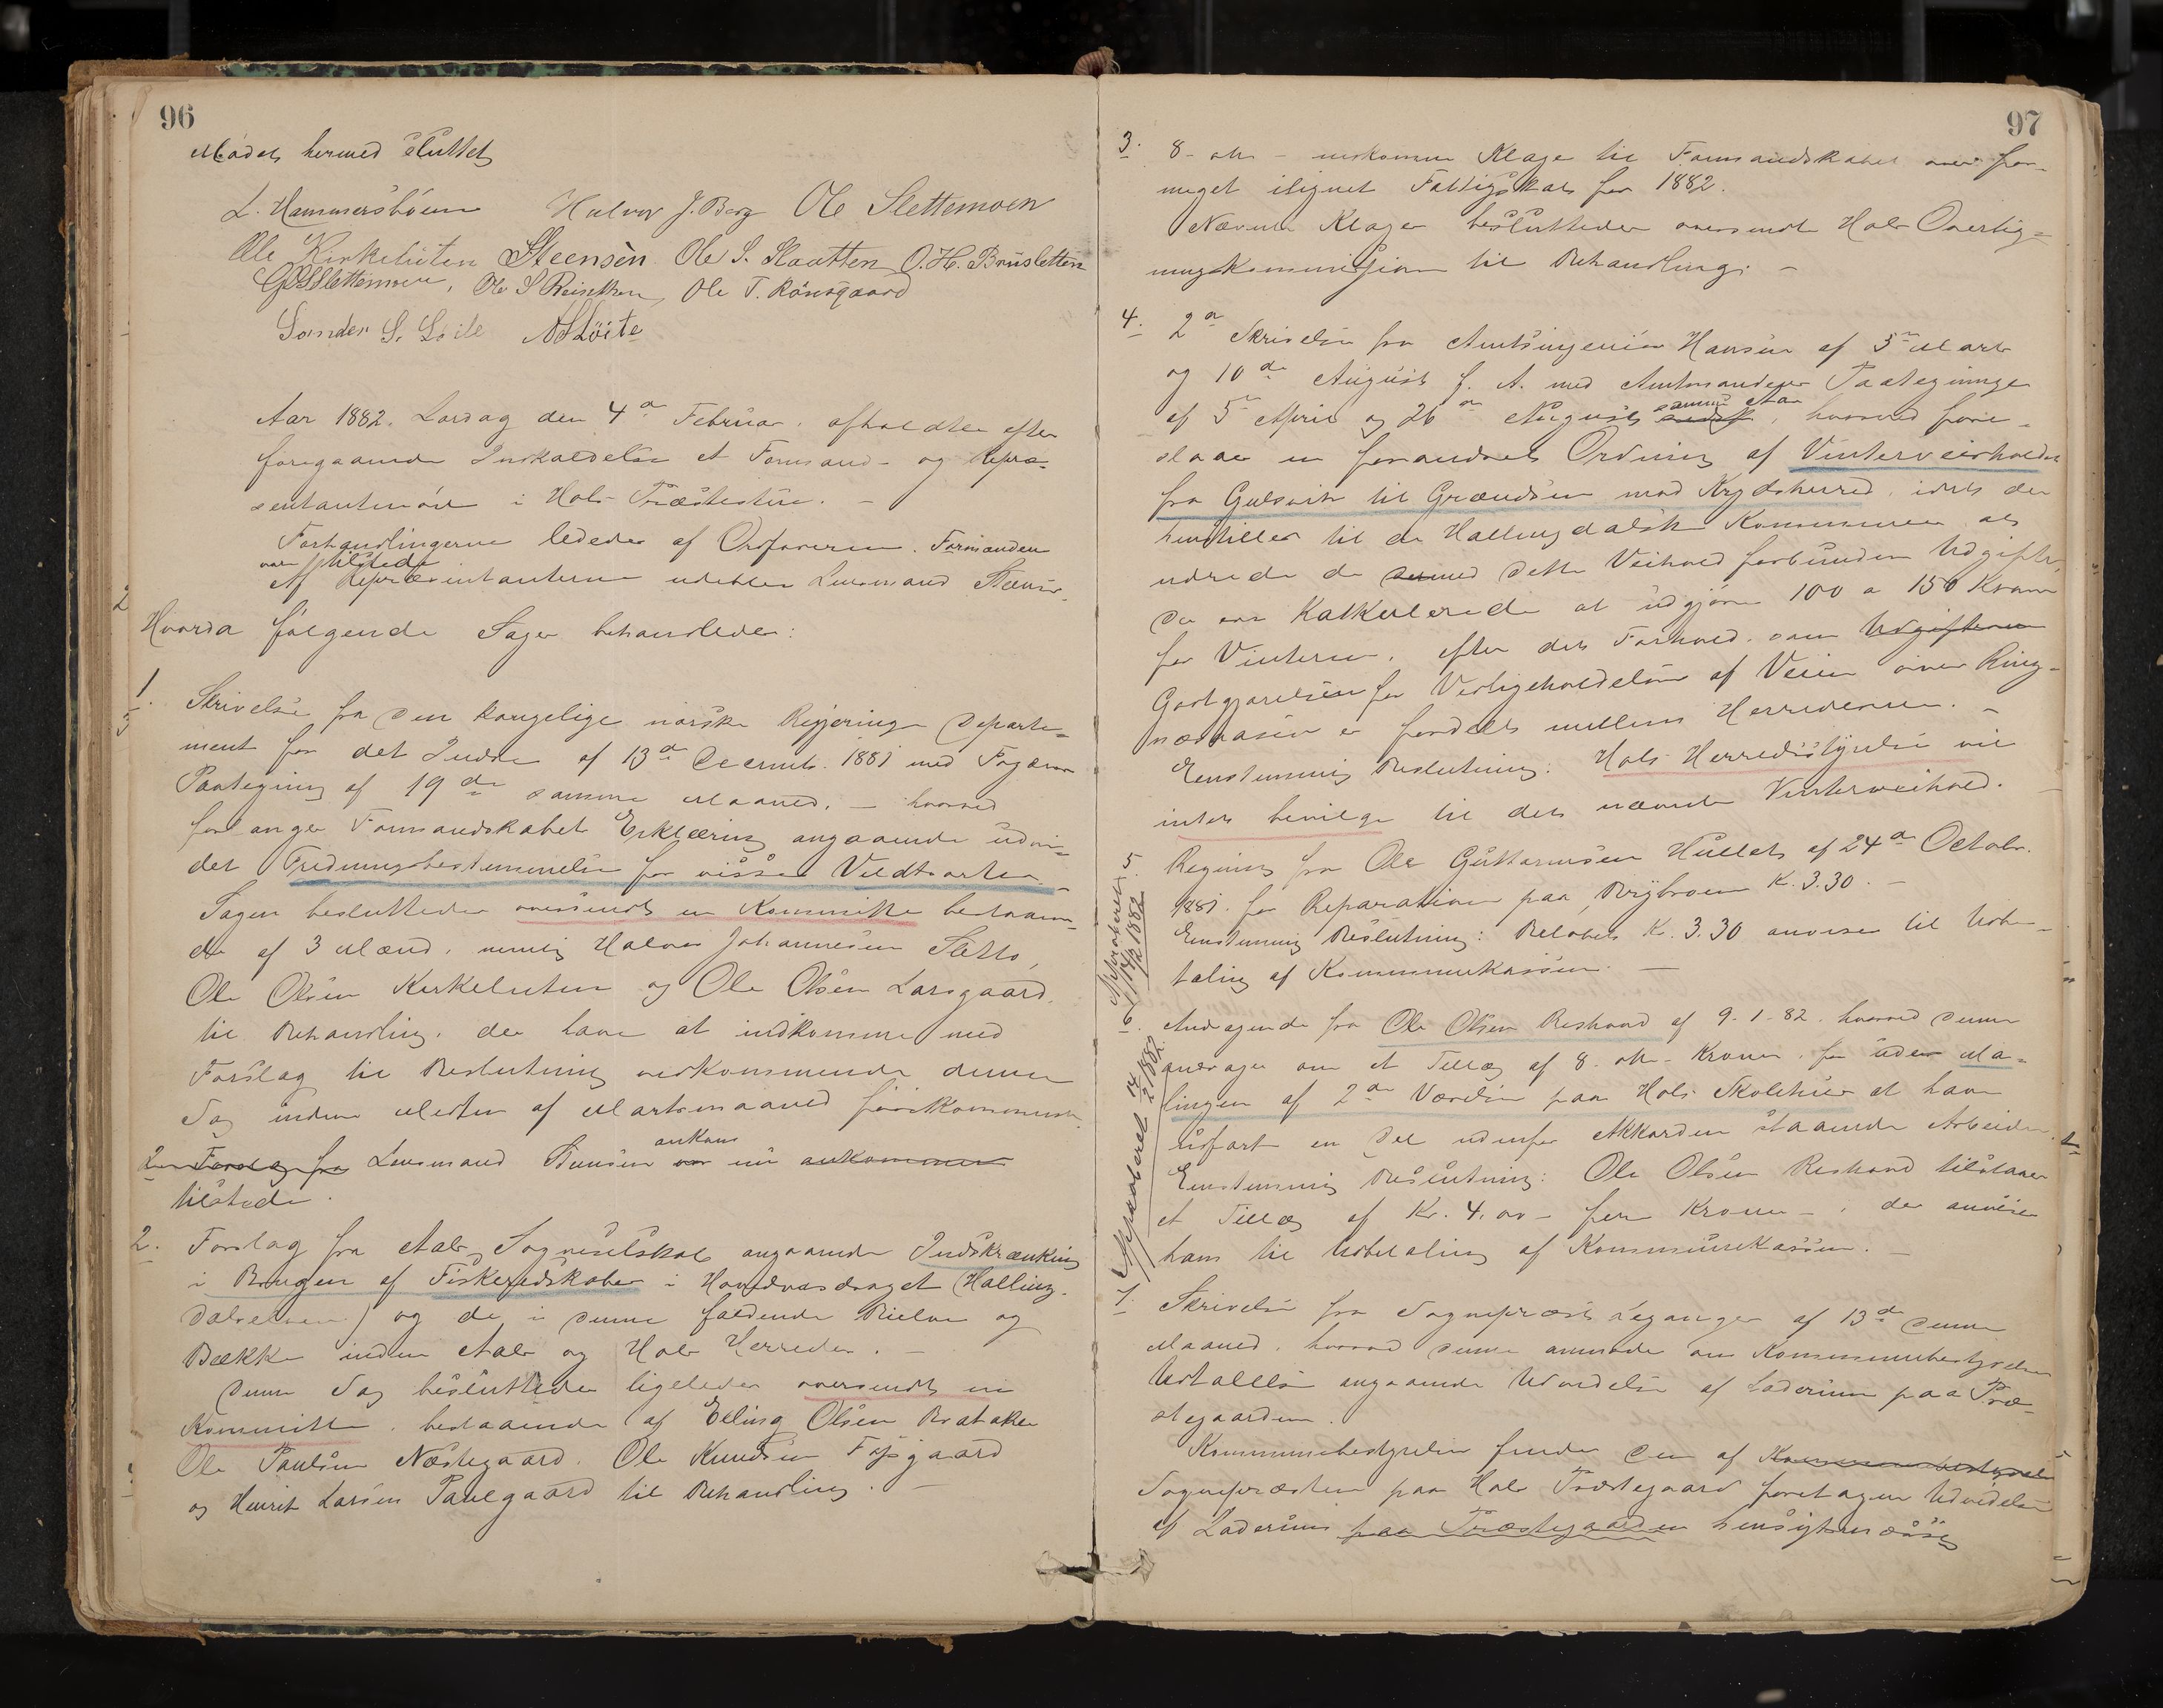 96
Mødet hermed sluttet
L. Hammersbøen Halvor J. Berg Ole Slettemoen
Ole Kirkeluten Steensen Ole S. Slaatten O. H. Brusletten
Slettemoen, Ole S Ole T. Rønsgaard
Sander S. Løite
Aar 1882. Lørdag den 4de Februar, afholdtes efter
foregaaende Indkaldelse et Formand- og Repræ-
sentantmøde i Hols Præstestue. –
Forhandlingerne lededes af Ordføreren. Formænden
var tilstede
Af Repræsentanterne udebler Lensmand Steensen.
Hvorda følgende Sager behandledes:
1. Skrivelse fra den kongelige norske Regjerings Departe-
ment for det Indre af 13de Decemb. 1881 med Fogdens
Paategning af 19de samme Maaned, – hvorved
forlanges Formandskabets Erklæring angaaende udvi-
det Fredningsbestemmelse for visse Vildtarter. –
Sagen besluttedes oversendt en Kommitte bestaaen-
de af 3 Mænd, nemlig Halvor Johannesen Sletto,
Ole Olsen Kirkeluten og Ole Olsen Larsgaard,
til Behandling, der have at indkomme med
Forslag til Beslutning vedkommende denne
Sag inden Midten af Martsmaaned førstkommende.
2. Forslag fra Lensmand Steensen var ankom nu ankommen
tilstede.
2. Forslag fra Aals Sogneselskab angaaende Indskrænkning
i Brugen af Fiskeredskaber i Hovedvasdraget (Halling-
dalselven) og de i denne faldende Bielve og
Bække inden Aals og Hols Herreder. –
Denne Sag besluttedes ligeledes oversendt en
Kommitte, bestaaende af Elling Olsen Brataker
Ole Paulsen Næstegaard, Ole Knudsen
og Henrik Larsen Paulegaard til Behandling. –
97
3. 8 – otte – indkomne Klager til Formandskabet over for-
meget ilignet Fattigskat for 1882.
Nævnte Klager besluttedes oversendt Hols Overlig-
ningskommission til Behandling. –
4. 2de Skrivelser fra Amtsingeniør Hansen af 5te Marts
og 10de August f. A. med Amtmandens Paategninger
af 5te April og 26de August samme Aar sidst, hvorved fore-
slaaes en forandret Ordning af Vinterveiholdet
fra Gulsvik til Grændsen mod Krydsherred, idet der
henstilles til de Hallingdalske Kommuner at
udrede de dermed dette Veihold forbundne Udgifter,
der var kalkulerede at udgjøre 100 a 150 Kroner
for Vinteren, efter det Forhold, som Udgifterne
Godtgjørelsen for Vedligeholdelsen af Veien over Ring-
nesaasen er fordelt mellem Herrederne. –
Eenstemmig Beslutning: Hols Herredsstyrelse vil
intet bevilge til det nævnte Vinterveihold.
5. Regning fra Ole Guttormsen Hullet af 24de Octobr.
1881 for Reparation paa Brybroen K. 3.30. –
Eenstemmig Beslutning: Beløbet Kr. 3.30 anvises til Udbe-
taling af Kommunekassen. –
Approberet 14/2 1882
6. Andragende fra Ole Olsen Reshovd af 9-1-82 hvorved denne
andrager om et Tillæg af 8 – otte – Kroner, for uden Ma-
lingen af 2de Værelser paa Hols Skolehuse at have
udført en Del udenfor Akkorden staaende Arbeider.
Eenstemmig Beslutning: Ole Olsen Reshovd tilstaaes
et Tillæg af Kr. 4,00 – fire Kroner –, der anvises
ham til Udbetaling af Kommunekassen. –
Approberet 14/2 1882
7. Skrivelse fra Sognepræst af 13de denne
Maaned, hvorved denne anmoder om Kommunebestyrelsens
Udtalelse angaaende Udvidelse af Laderum paa Præ-
stegaarden.
Kommunebestyrelsen finder den af Kommunebestyrelsen
Sognepræsten paa Hols Præstegaard foretagne Udvidelse
af Laderum paa Præstegaarden hensigtsmæssig